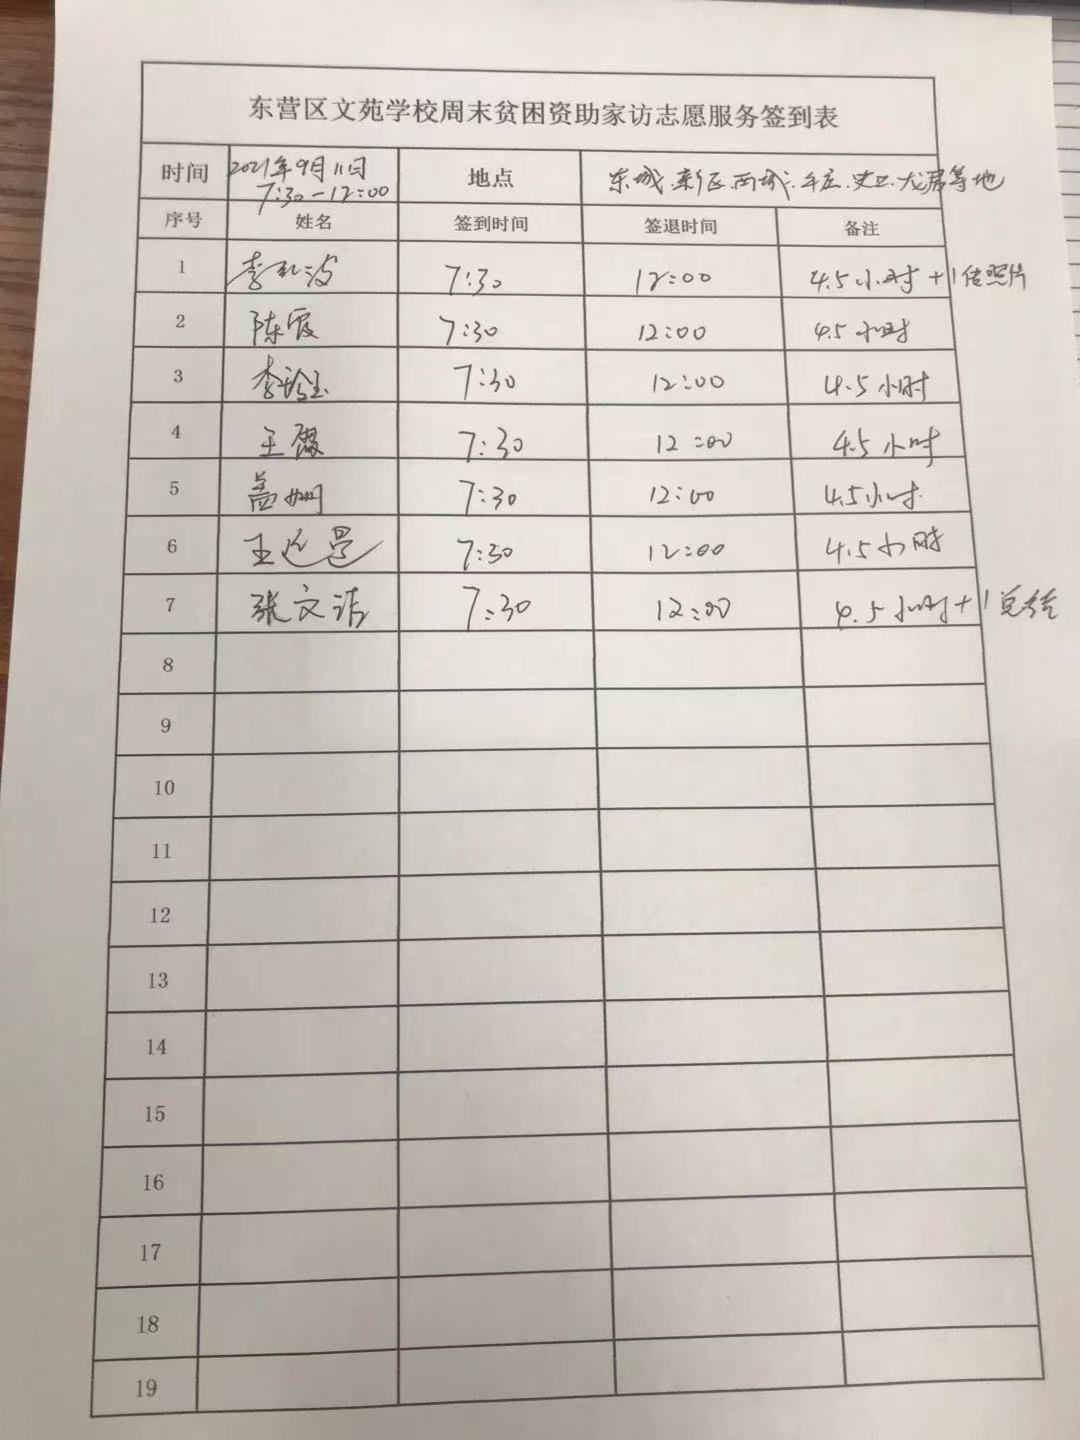 东营区文苑学校周末贫困资助家访志愿服务签到表
时间 2021年9月11日 7:30-12:00 地点 东城.新区.西城.牛庄.史口.龙居等地
序号 姓名 签到时间 签退时间 备注
1 李 波 7:30 12:00 4.5小时+1 照片
2 陈霞 7:30 12:00 4.5小时
3 李玲玉 7:30 12:00 4.5小时
4 王霞 7:30 12:00 4.5小时
5 盖姗 7:30 12:00 4.5小时
6 王 7:30 12:00 4.5小时
7 张文洁 7:30 12:00 4.5小时+1总结
8
9
10
11
12
13
14
15
16
17
18
19